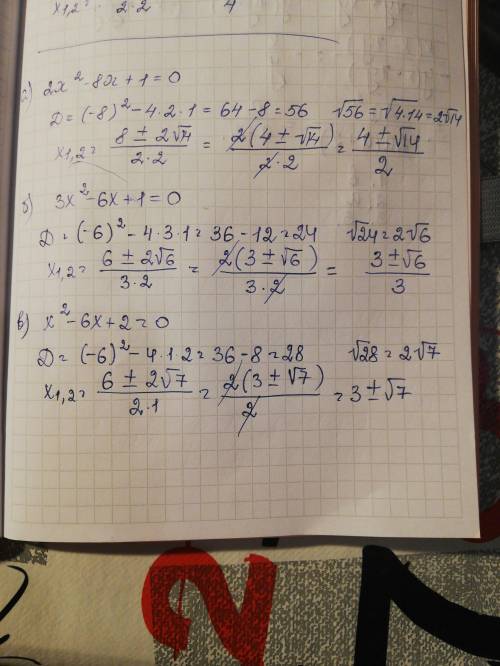 x₁,₂= 2·2 4
а) 2x² - 8x + 1 = 0
D = (-8)² - 4·2·1 = 64 - 8 = 56 √56 = √4·14 = 2√14
x₁,₂ = (8 ± 2√14)/(2·2) = 2(4 ± √14)/(2·2) = (4 ± √14)/2
б) 3x² - 6x + 1 = 0
D = (-6)² - 4·3·1 = 36 - 12 = 24 √24 = 2√6
x₁,₂ = (6 ± 2√6)/(3·2) = 2(3 ± √6)/(3·2) = (3 ± √6)/3
в) x² - 6x + 2 = 0
D = (-6)² - 4·1·2 = 36 - 8 = 28 √28 = 2√7
x₁,₂ = (6 ± 2√7)/(2·1) = 2(3 ± √7)/2 = 3 ± √7